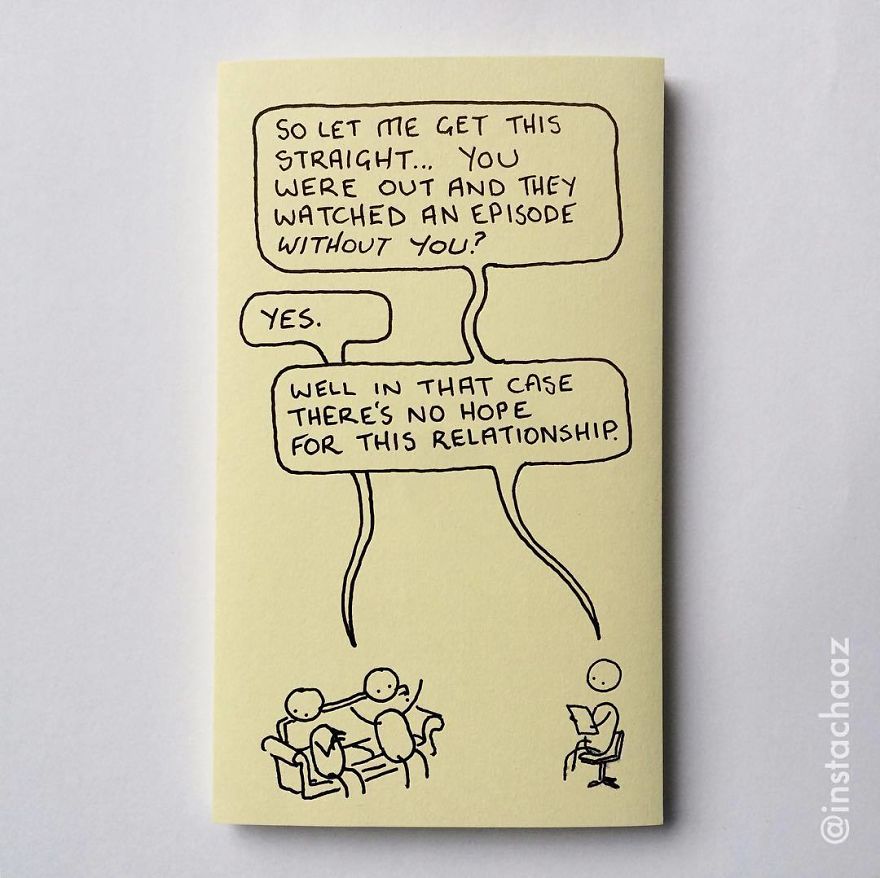 SO LET ME GET THIS
STRAIGHT... YOU
WERE OUT AND THEY
WATCHED AN EPISODE
WITHOUT YOU?
YES.
WELL IN THAT CASE
THERE'S NO HOPE
FOR THIS RELATIONSHIP.
@instachaaz